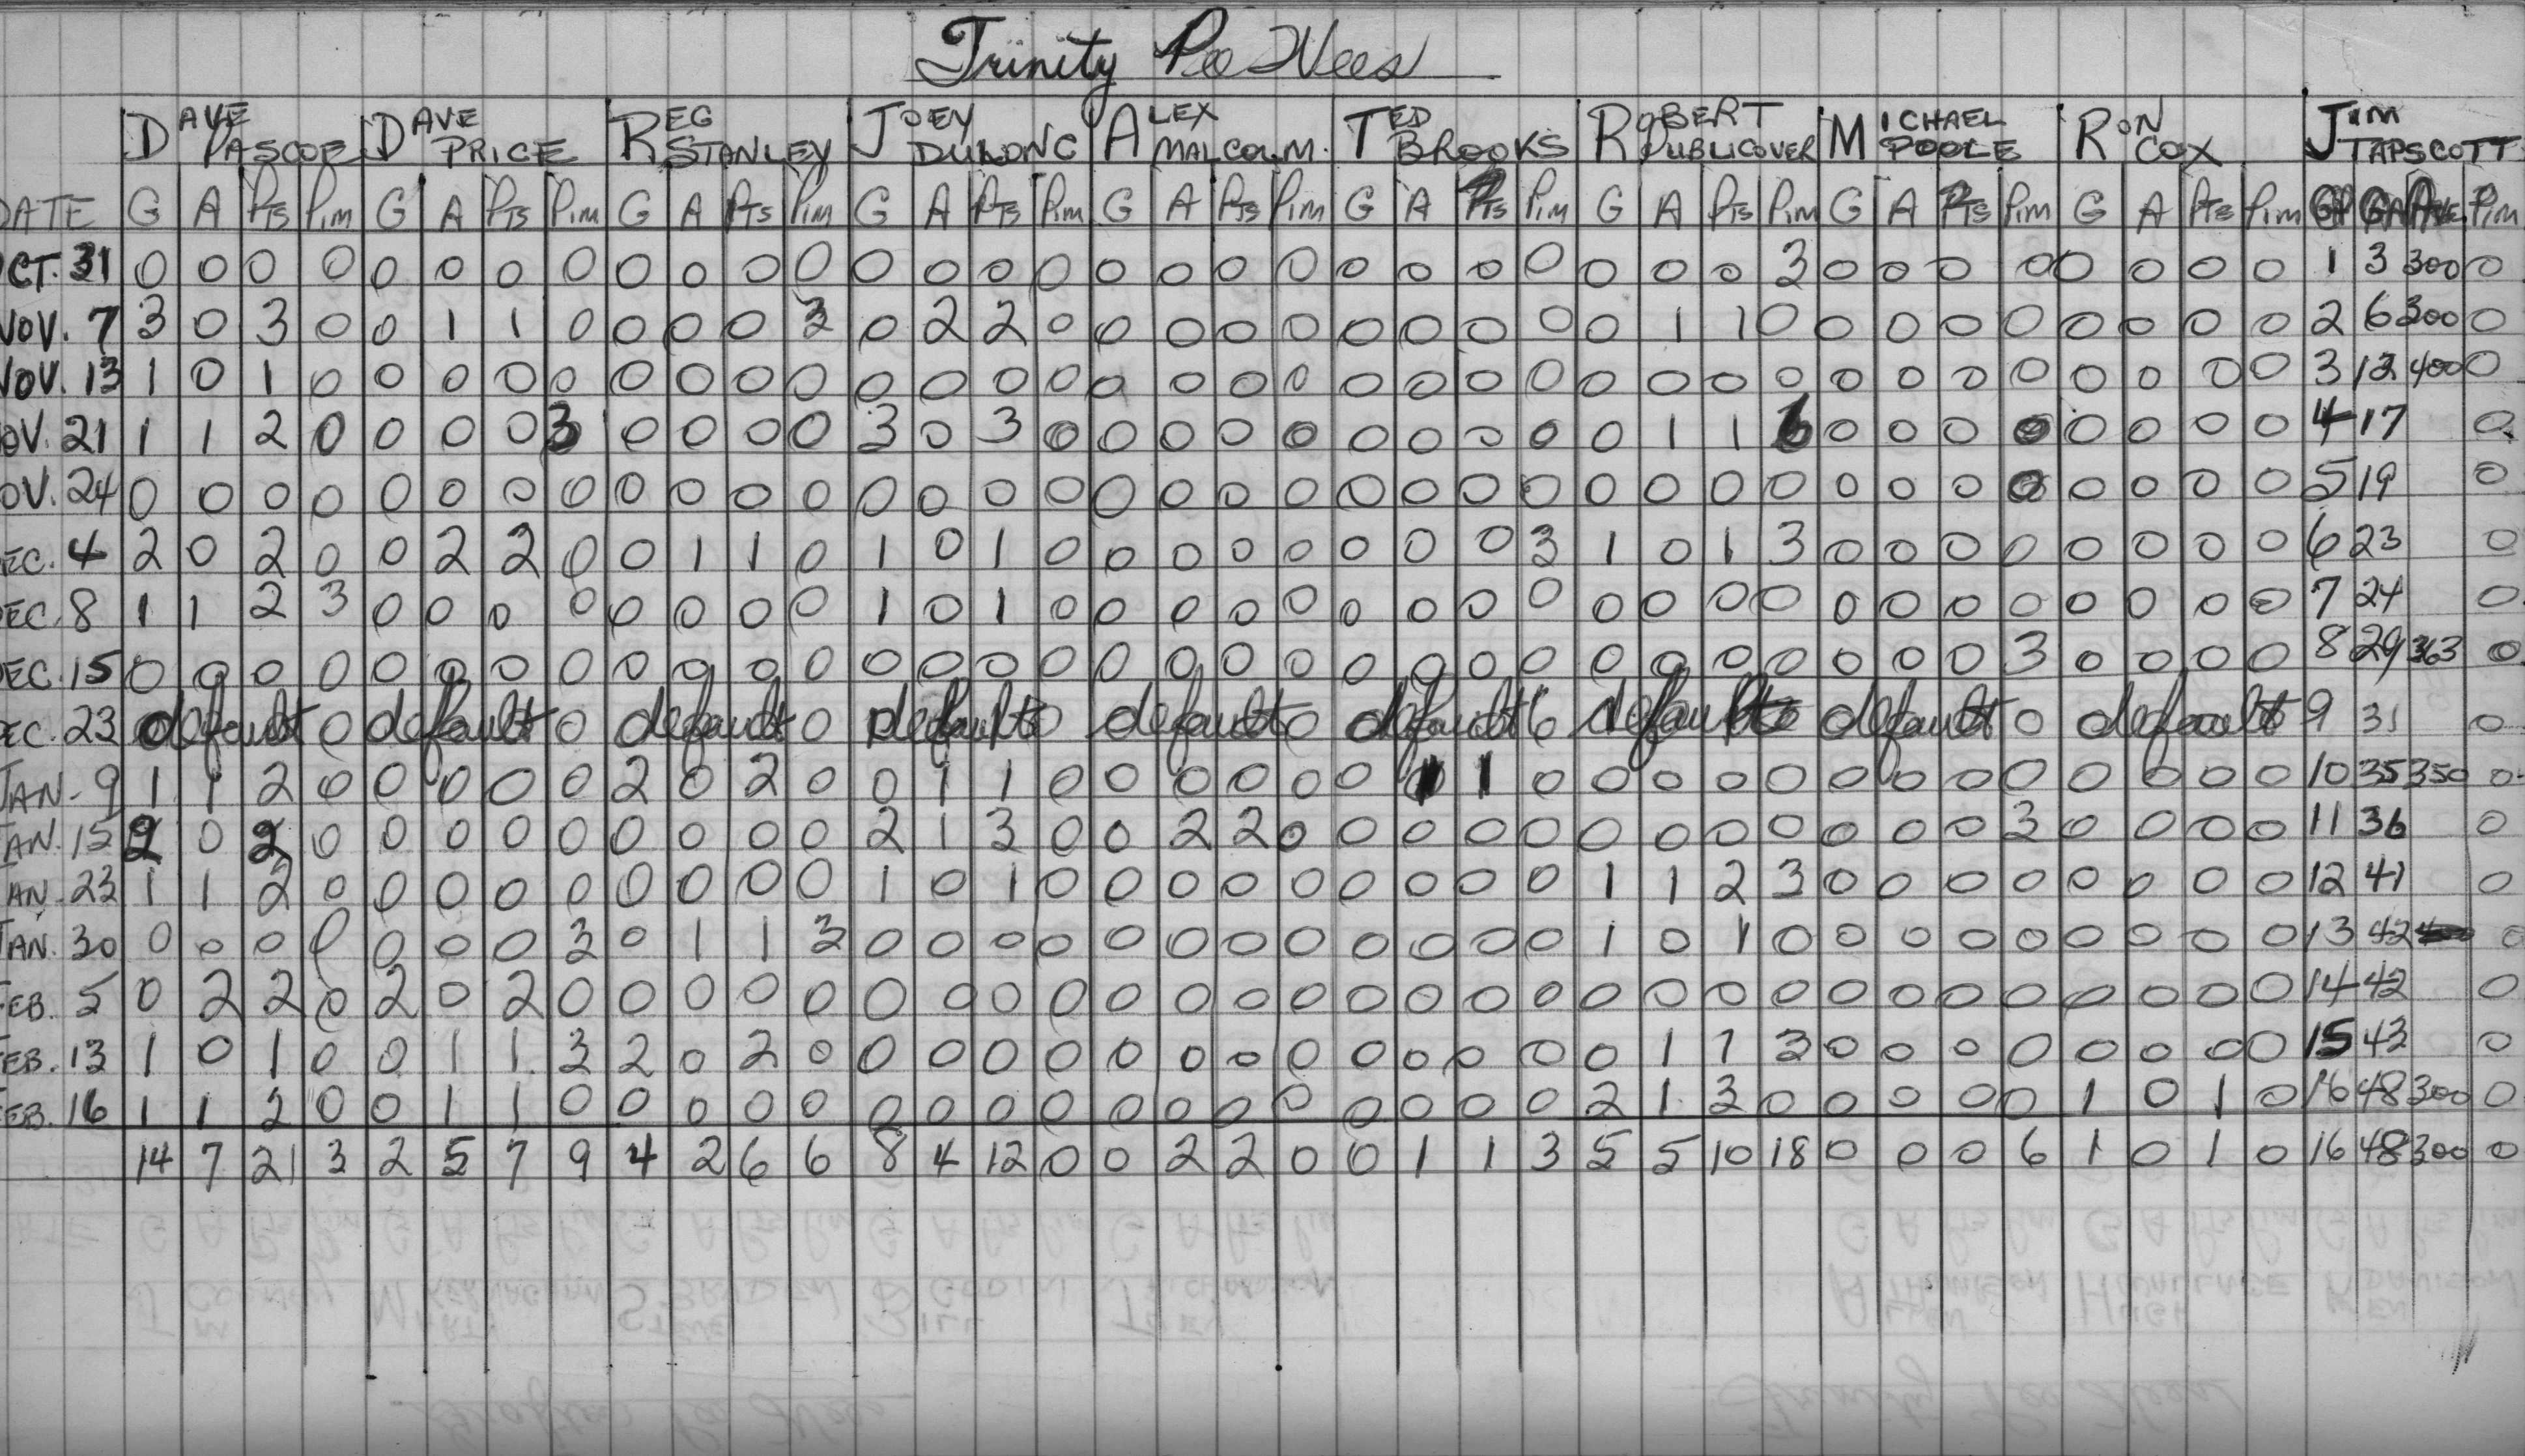 Trinity Pee Wees
DAVE PASCOE DAVE PRICE REG STANLEY JOEY DULONG ALEX MALCOLM. TED BROOKS ROBERT PUBLICOVER MICHAEL POOLE RON COX JIM TAPSCOTT
DATE G A Pts Pim G A Pts Pim G A Pts Pim G A Pts Pim G A Pts Pim G A Pts Pim G A Pts Pim G A Pts Pim G A Pts Pim GP GA Ave. Pim
OCT. 31 0 0 0 0 0 0 0 0 0 0 0 0 0 0 0 0 0 0 0 0 0 0 0 0 0 0 0 3 0 0 0 0 0 0 0 0 1 3 300 0
NOV. 7 3 0 3 0 0 1 1 0 0 0 0 3 0 2 2 0 0 0 0 0 0 0 0 0 0 1 1 0 0 0 0 0 0 0 0 0 2 6 300 0
NOV. 13 1 0 1 0 0 0 0 0 0 0 0 0 0 0 0 0 0 0 0 0 0 0 0 0 0 0 0 0 0 0 0 0 0 0 0 0 3 12 400 0
NOV. 21 1 1 2 0 0 0 0 3 0 0 0 0 3 0 3 0 0 0 0 0 0 0 0 0 0 1 1 6 0 0 0 0 0 0 0 0 4 17 0
NOV. 24 0 0 0 0 0 0 0 0 0 0 0 0 0 0 0 0 0 0 0 0 0 0 0 0 0 0 0 0 0 0 0 0 0 0 0 0 5 19 0
DEC. 4 2 0 2 0 0 2 2 0 0 1 1 0 1 0 1 0 0 0 0 0 0 0 0 3 1 0 1 3 0 0 0 0 0 0 0 0 6 23 0
DEC. 8 1 1 2 3 0 0 0 0 0 0 0 0 1 0 1 0 0 0 0 0 0 0 0 0 0 0 0 0 0 0 0 0 0 0 0 0 7 24 0
DEC. 15 0 0 0 0 0 0 0 0 0 0 0 0 0 0 0 0 0 0 0 0 0 0 0 0 0 0 0 0 0 0 0 3 0 0 0 0 8 29 363 0
DEC. 23 default 0 default 0 default 0 default 0 default 0 default 0 default default 0 default 9 31 0
JAN. 9 1 1 2 0 0 0 0 0 2 0 2 0 0 1 1 0 0 0 0 0 0 1 1 0 0 0 0 0 0 0 0 0 0 0 0 0 10 35 350 0
JAN. 15 2 0 2 0 0 0 0 0 0 0 0 0 2 1 3 0 0 2 2 0 0 0 0 0 0 0 0 0 0 0 0 3 0 0 0 0 11 36 0
JAN. 23 1 1 2 0 0 0 0 0 0 0 0 0 1 0 1 0 0 0 0 0 0 0 0 0 1 1 2 3 0 0 0 0 0 0 0 0 12 41 0
JAN. 30 0 0 0 0 0 0 0 3 0 1 1 3 0 0 0 0 0 0 0 0 0 0 0 0 1 0 1 0 0 0 0 0 0 0 0 0 13 42 0
FEB. 5 0 2 2 0 2 0 2 0 0 0 0 0 0 0 0 0 0 0 0 0 0 0 0 0 0 0 0 0 0 0 0 0 0 0 0 0 14 42 0
FEB. 13 1 0 1 0 0 1 1 3 2 0 2 0 0 0 0 0 0 0 0 0 0 0 0 0 0 1 1 3 0 0 0 0 0 0 0 0 15 43 0
FEB. 16 1 1 2 0 0 1 1 0 0 0 0 0 0 0 0 0 0 0 0 0 0 0 0 0 2 1 3 0 0 0 0 0 1 0 1 0 16 48 300 0
14 7 21 3 2 5 7 9 4 2 6 6 8 4 12 0 0 2 2 0 0 1 1 3 5 5 10 18 0 0 0 6 1 0 1 0 16 48 300 0